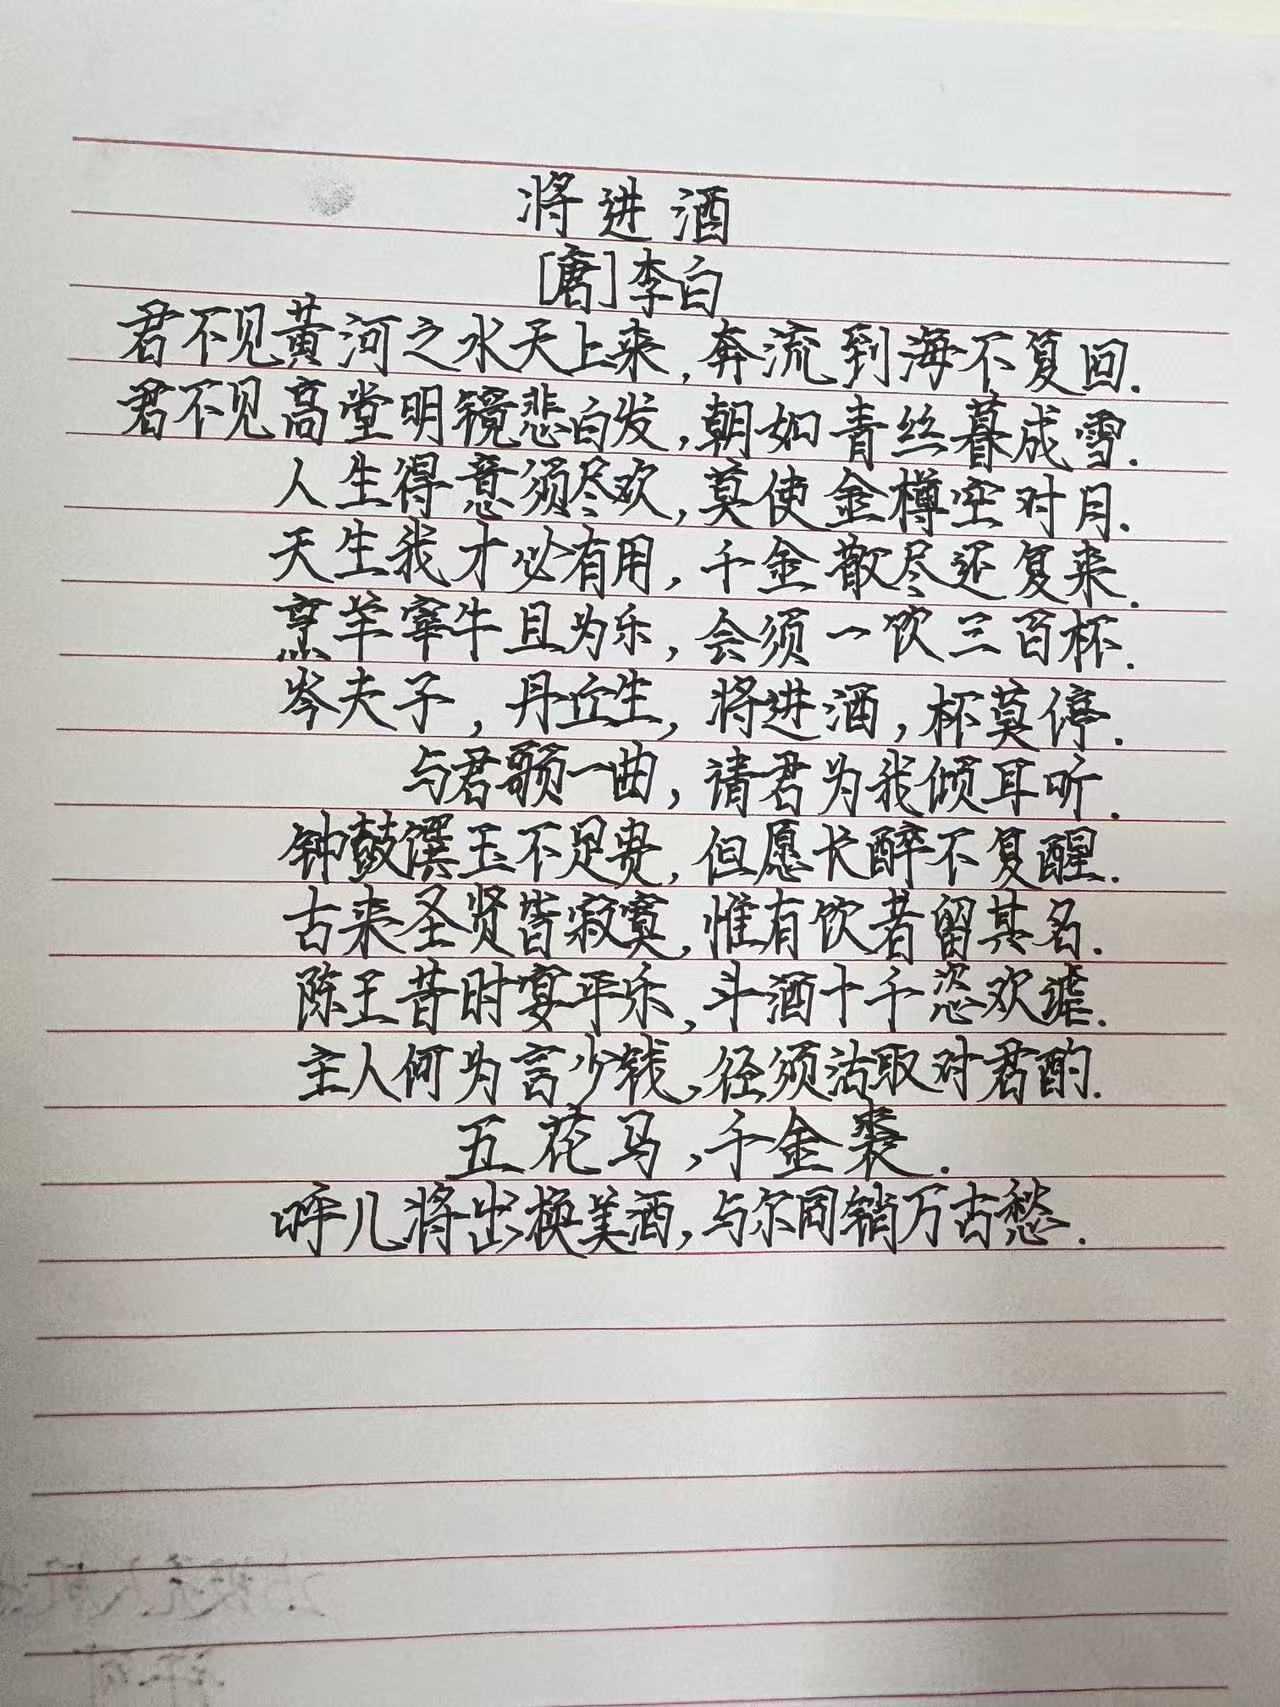 将进酒
[唐]李白
君不见黄河之水天上来,奔流到海不复回.
君不见高堂明镜悲白发,朝如青丝暮成雪.
人生得意须尽欢,莫使金樽空对月.
天生我才必有用,千金散尽还复来.
烹羊宰牛且为乐,会须一饮三百杯.
岑夫子,丹丘生,将进酒,杯莫停.
与君歌一曲,请君为我倾耳听.
钟鼓馔玉不足贵,但愿长醉不复醒.
古来圣贤皆寂寞,惟有饮者留其名.
陈王昔时宴平乐,斗酒十千恣欢谑.
主人何为言少钱,径须沽取对君酌.
五花马,千金裘.
呼儿将出换美酒,与尔同销万古愁.